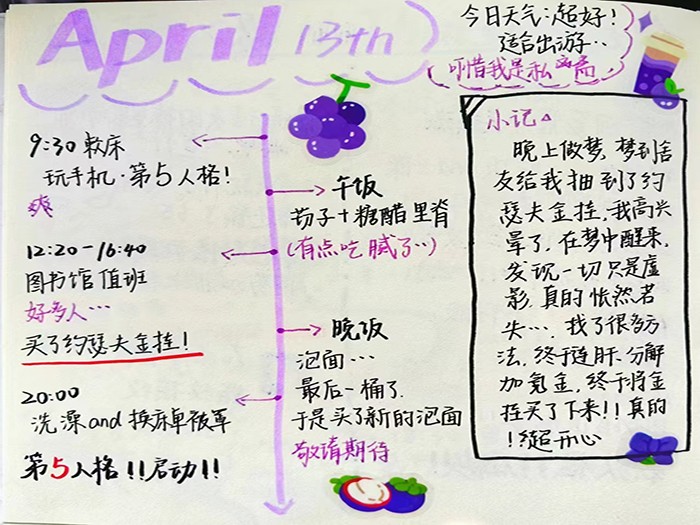 April 13th
今日天气:超好!
适合出游…
我是私
9:30 起床
玩手机·第5人格!
爽
12:20-16:40
图书馆值班
好多人…
买了约瑟夫金挂!
20:00
洗澡and换床单被罩
第5人格!!启动!!
午饭
茄子+糖醋里脊
(有点吃腻了…)
晚饭
泡面…
最后一桶了,
于是买了新的泡面
敬请期待
小记
晚上做梦,梦到舍
友给我抽到了约
瑟夫金挂,我高兴
晕了,在梦中醒来,
发现一切只是虚
影,真的怅然若
失…,找了很多方
法,终于连肝、分解
加氪金,终于将金
挂买了下来!!真的
!超开心